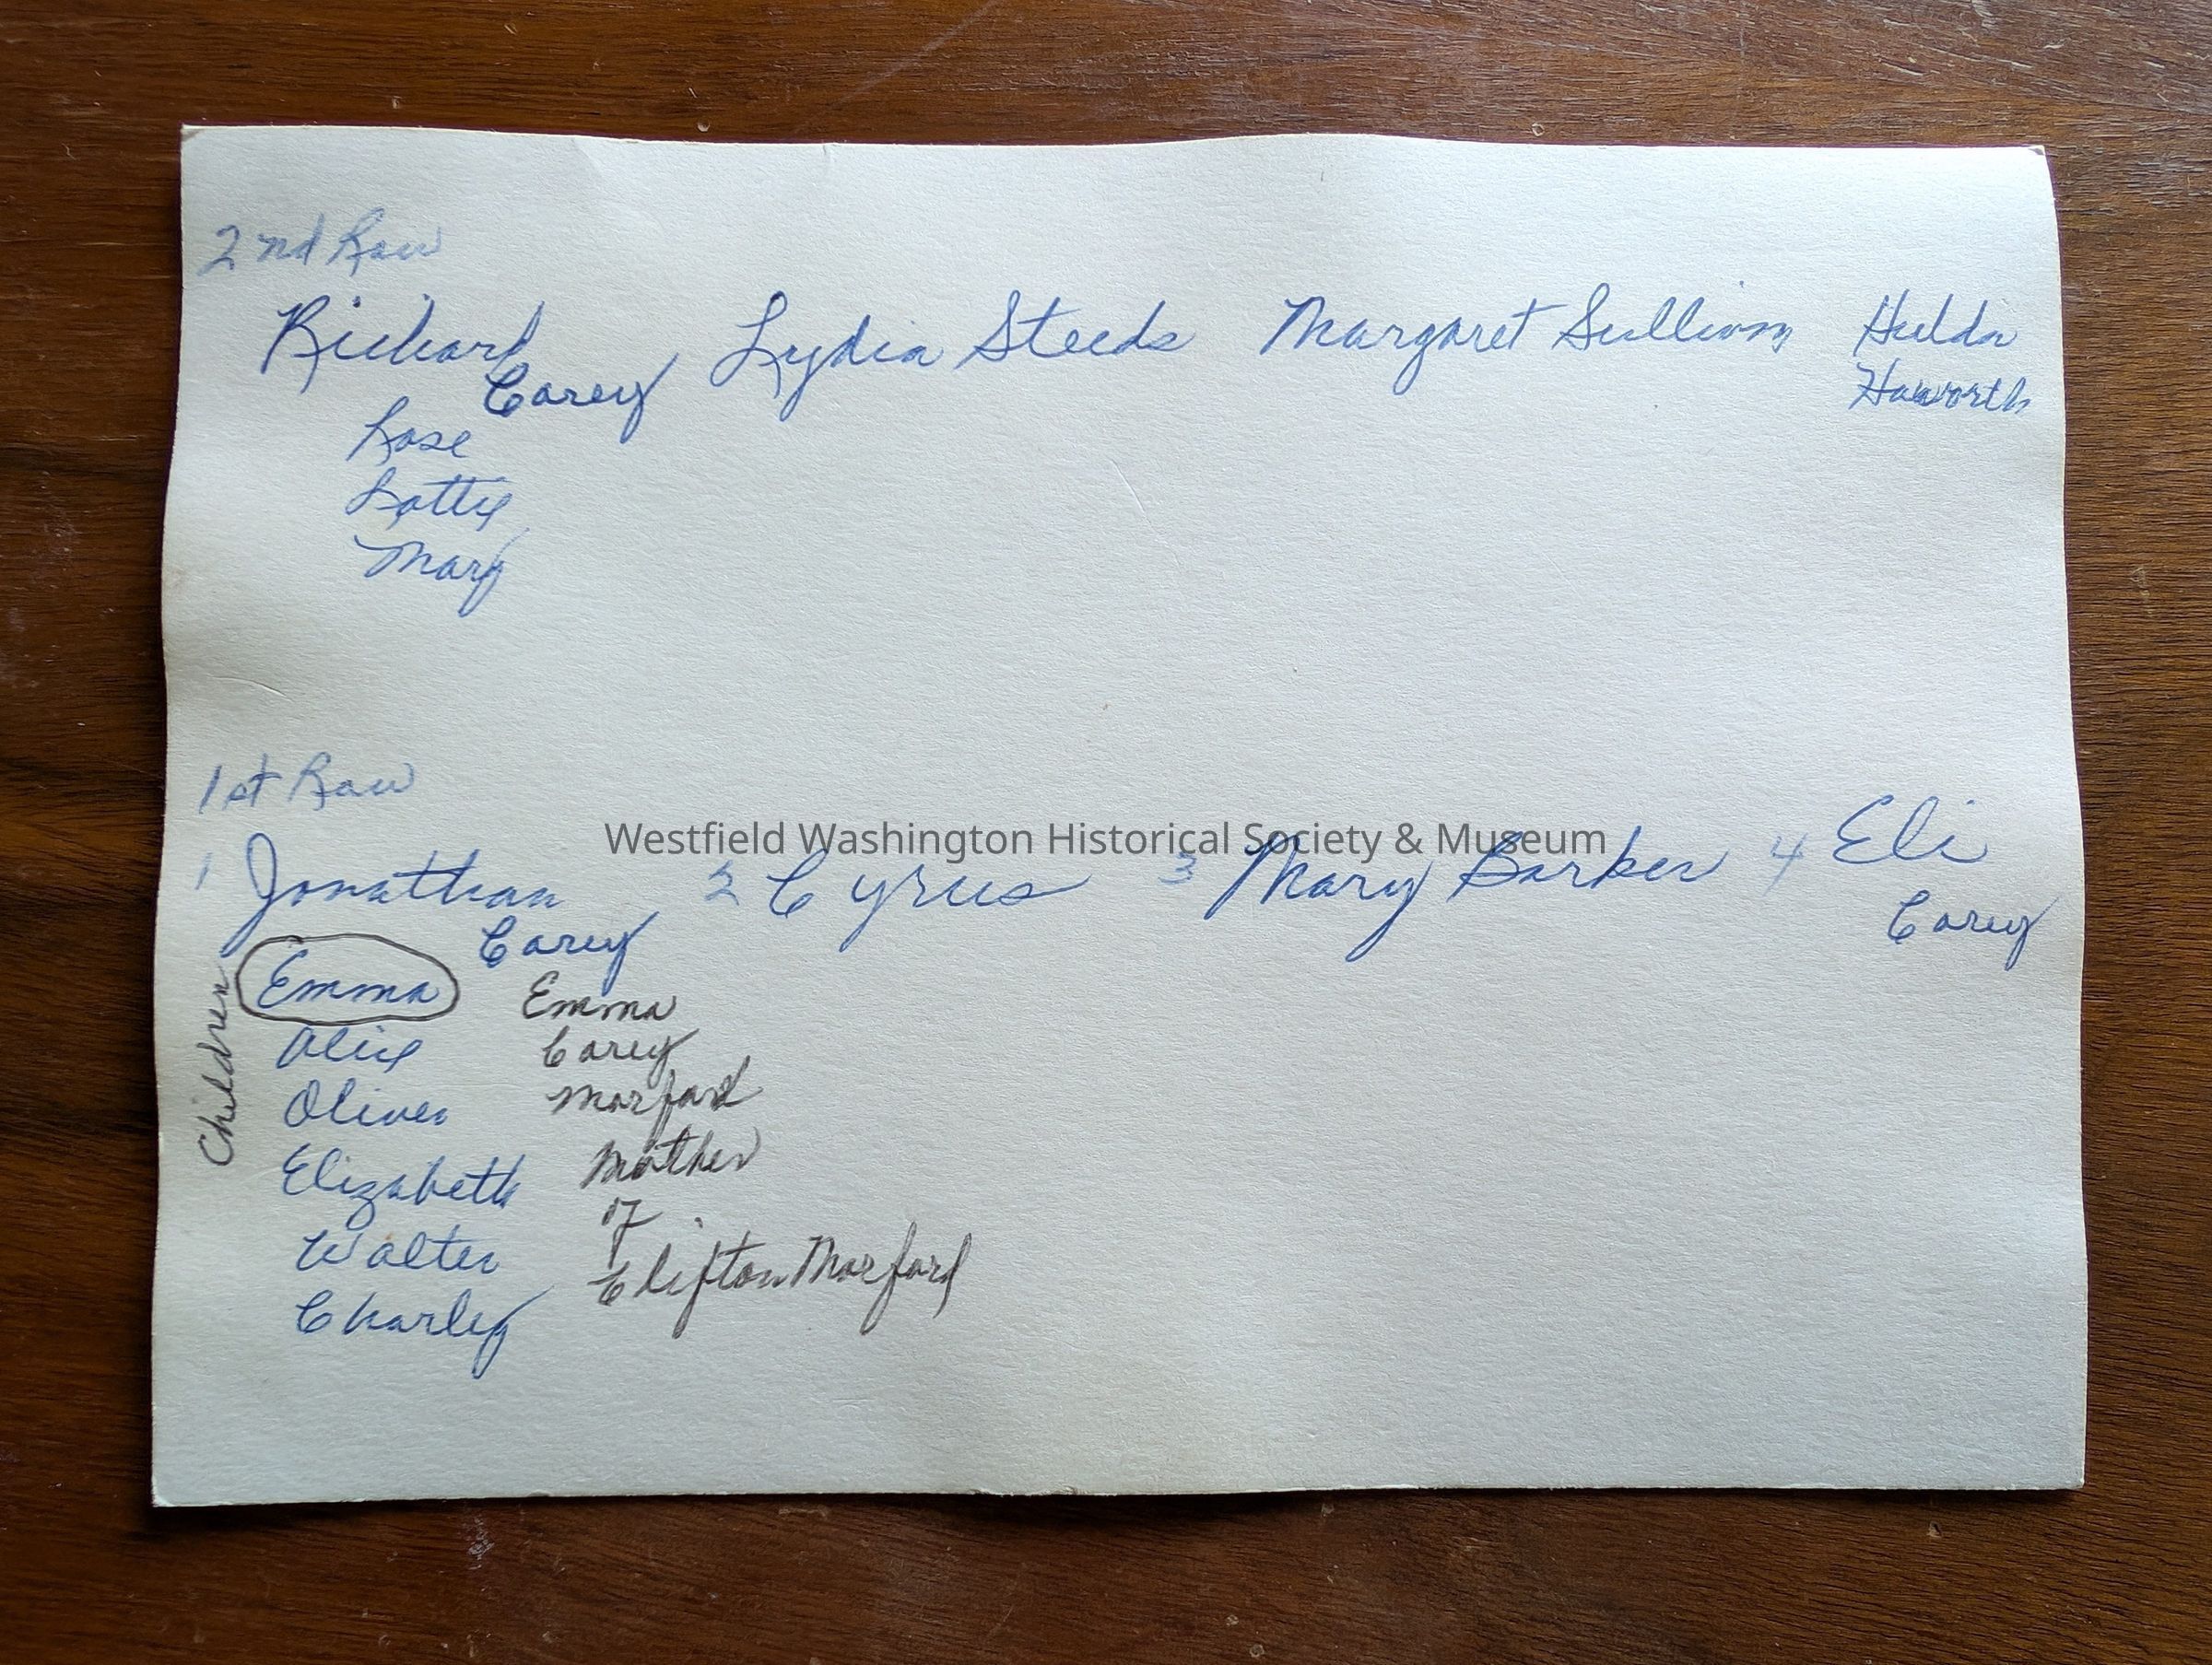 2nd Row
Richard Carey Lydia Steeds Margaret Sullivan Hulda Haworth
Rose
Lotty
Mary
1st Row
Westfield Washington Historical Society & Museum
1 Jonathan Carey 2 Cyrus 3 Mary Barker 4 Eli Carey
Children
Emma
Alice
Oliver
Elizabeth
Walter
Charley
Emma
Carey
Morford
Mother
of
Clifton Morford